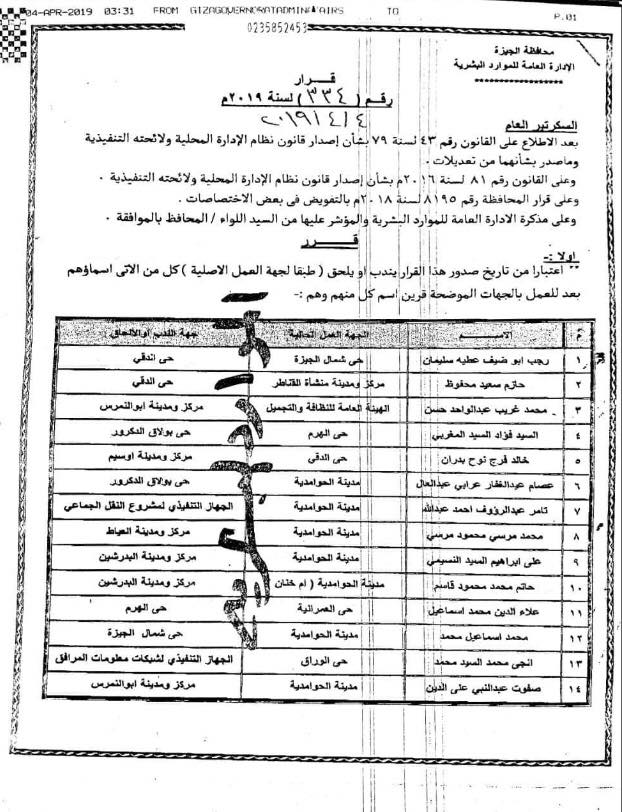 04-APR-2019 03:31 FROM GIZAGOVERNORATADMINAFFAIRS TO P.01
0235852453
محافظة الجيزة
الإدارة العامة للموارد البشرية
********************
قرار
رقم ( ٣٣٤ ) لسنة ٢٠١٩م
٢٠١٩/٤/٤
السكرتير العام
بعد الاطلاع على القانون رقم ٤٣ لسنة ٧٩ بشأن إصدار قانون نظام الإدارة المحلية ولائحته التنفيذية
وماصدر بشأنهما من تعديلات .
وعلى القانون رقم ٨١ لسنة ٢٠١٦م بشأن إصدار قانون نظام الإدارة المحلية ولائحته التنفيذية .
وعلى قرار المحافظة رقم ٨١٩٥ لسنة ٢٠١٨م بالتفويض فى بعض الاختصاصات .
وعلى مذكرة الادارة العامة للموارد البشرية والمؤشر عليها من السيد اللواء / المحافظ بالموافقة .
قــرر
اولا :-
** اعتبارا من تاريخ صدور هذا القرار يندب او يلحق ( طبقا لجهة العمل الاصلية ) كل من الآتى اسماؤهم
بعد للعمل بالجهات الموضحة قرين اسم كل منهم وهم :-
م الاســم الجهة العمل الحالية جهة الندب اوالالحاق
١ رجب ابو ضيف عطيه سليمان حى شمال الجيزة حى الدقي
٢ حازم سعيد محفوظ مركز ومدينة منشأة القناطر حى الدقي
٣ محمد غريب عبدالواحد حسن الهيئة العامة للنظافة والتجميل مركز ومدينة ابوالنمرس
٤ السيد فؤاد السيد المغربي حى الهرم حى بولاق الدكرور
٥ خالد فرج نوح بدران حى الدقي مركز ومدينة اوسيم
٦ عصام عبدالغفار عرابي عبدالعال مدينة الحوامدية حى بولاق الدكرور
٧ تامر عبدالرؤوف احمد عبدالله مدينة الحوامدية الجهاز التنفيذي لمشروع النقل الجماعي
٨ محمد مرسي محمود مرسي مدينة الحوامدية مركز ومدينة العياط
٩ على ابراهيم السيد النسيمي مدينة الحوامدية مركز ومدينة البدرشين
١٠ حاتم محمد محمود قاسم مدينة الحوامدية ( ام خنان مركز ومدينة البدرشين
١١ علاء الدين محمد اسماعيل حى العمرانية حى الهرم
١٢ محمد اسماعيل محمد مدينة الحوامدية حى شمال الجيزة
١٣ انجى محمد السيد محمد حى الوراق الجهاز التنفيذي لشبكات معلومات المرافق
١٤ صفوت عبدالنبي على الدين مدينة الحوامدية مركز ومدينة ابوالنمرس